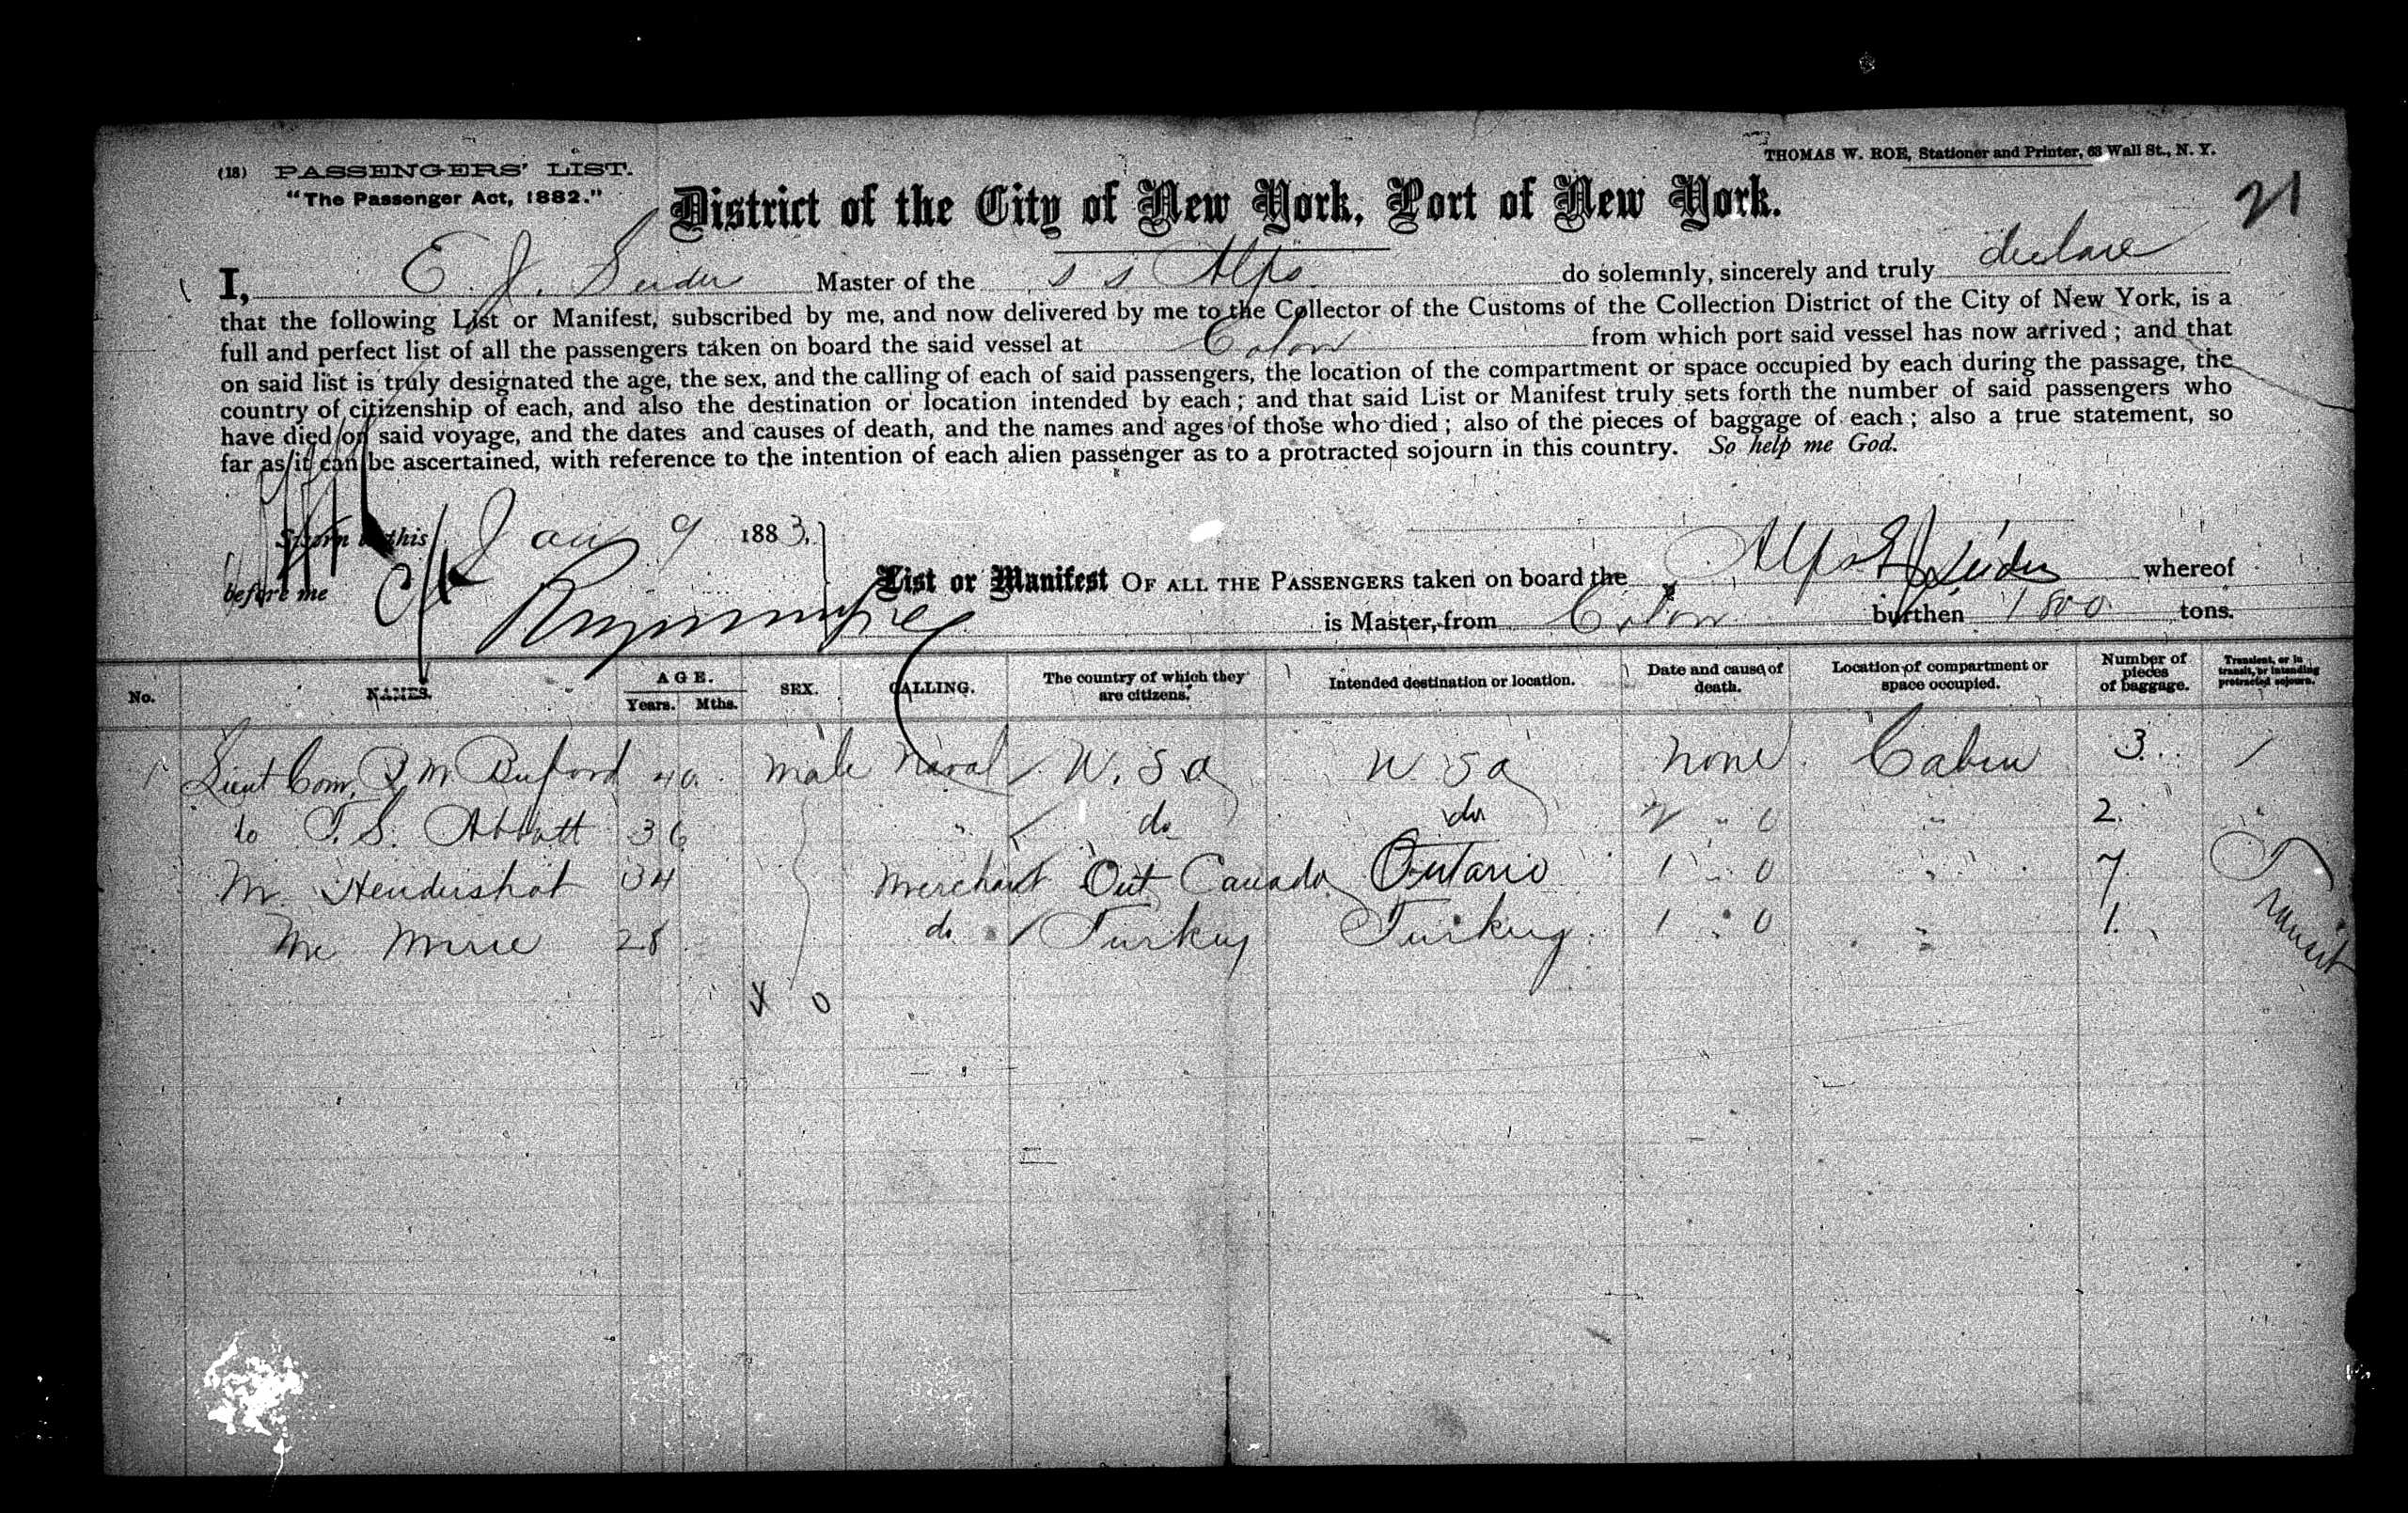 (18) PASSENGERS' LIST.
"The Passenger Act, 1882."
THOMAS W. ROE, Stationer and Printer, 68 Wall St., N. Y.
21
District of the City of New York, Port of New York.
I, E. J. Master of the S S Alps do solemnly, sincerely and truly declare
that the following List or Manifest, subscribed by me, and now delivered by me to the Collector of the Customs of the Collection District of the City of New York, is a
full and perfect list of all the passengers taken on board the said vessel at Colon from which port said vessel has now arrived; and that
on said list is truly designated the age, the sex, and the calling of each of said passengers, the location of the compartment or space occupied by each during the passage, the
country of citizenship of each, and also the destination or location intended by each; and that said List or Manifest truly sets forth the number of said passengers who
have died on said voyage, and the dates and causes of death, and the names and ages of those who died; also of the pieces of baggage of each; also a true statement, so
far as it can be ascertained, with reference to the intention of each alien passenger as to a protracted sojourn in this country. So help me God.
Sworn to this Jan 9 1883,
before me
List or Manifest OF ALL THE PASSENGERS taken on board the Alps whereof
is Master, from Colon burthen 1800 tons.
No. NAMES. AGE. Years. Mths. SEX. CALLING. The country of which they are citizens. Intended destination or location. Date and cause of death. Location of compartment or space occupied. Number of pieces of baggage. Transient, or in transit, or intending protracted sojourn.
1 Lieut Com. M Buford 40 male Naval U.S.a U S a none Cabin 3
do T. S. Abbott 36 " do do 2 " 0 " 2 "
Mr Hendershot 34 merchant Ont Canada Ontario 1 " 0 " 7 Transit
Mr 28 do Turkey Turkey 1 " 0 " 1
0